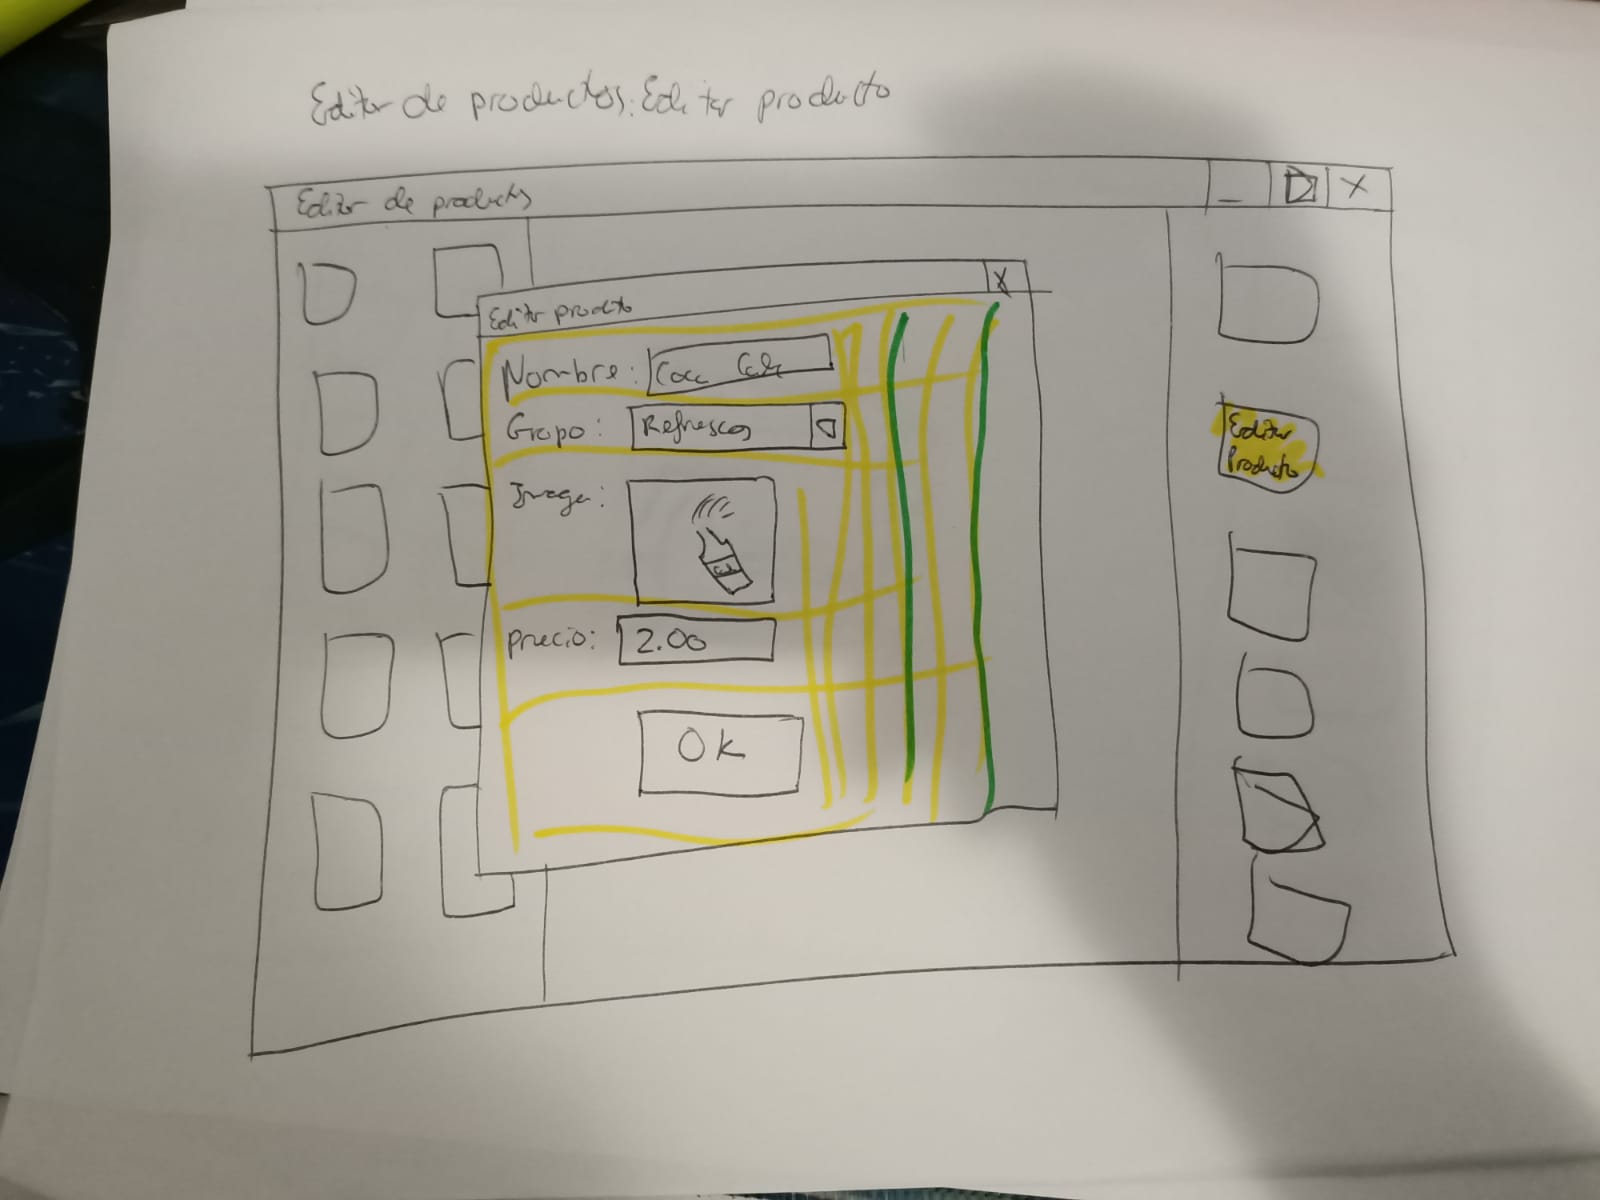 Editor de productos: Editar producto
Editor de productos
_ X
Editar producto X
Nombre: Coca Cola
Grupo: Refrescos
Imagen:
Precio: 2.00
OK
Editar
Producto